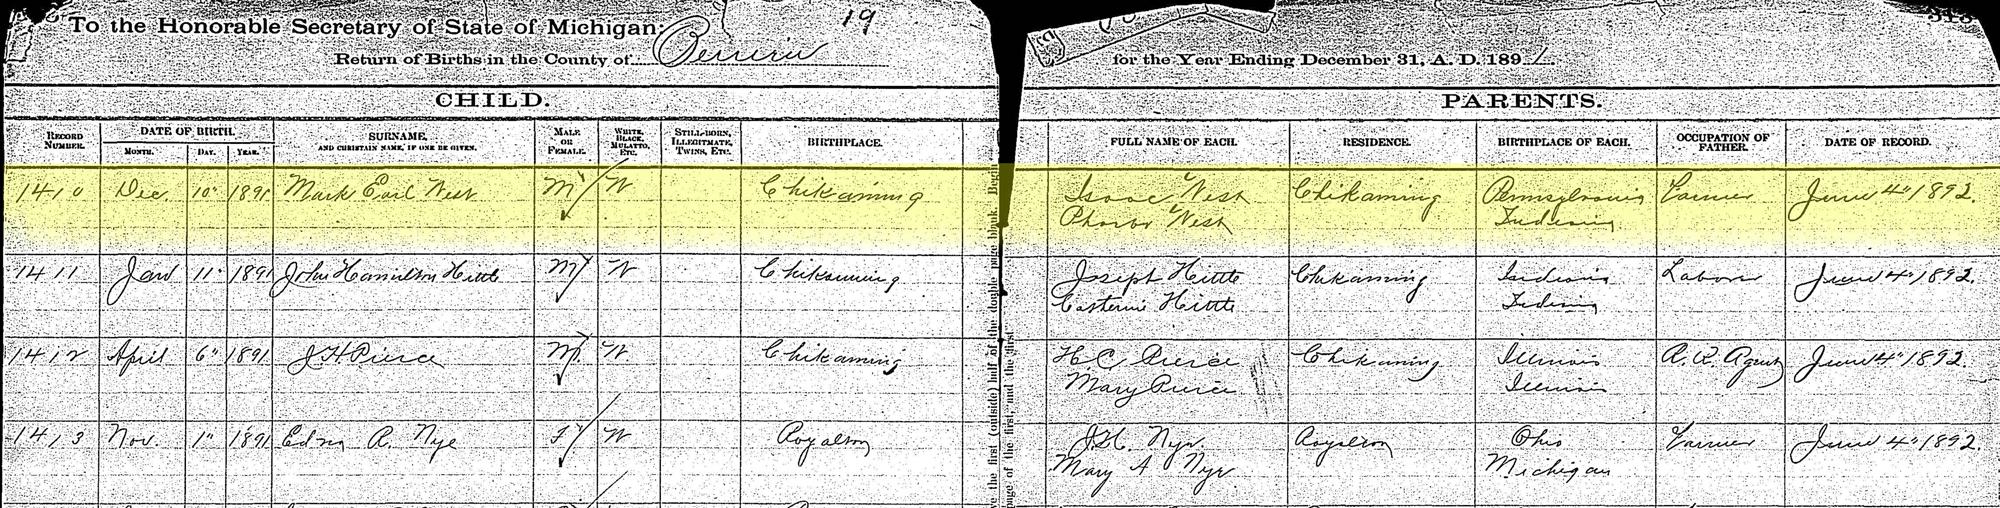 19
To the Honorable Secretary of State of Michigan:
Return of Births in the County of Berrien for the Year Ending December 31, A. D. 1891.
CHILD. PARENTS.
RECORD NUMBER. DATE OF BIRTH. MONTH. DAY. YEAR. SURNAME, AND CHRISTAIN NAME, IF ONE BE GIVEN. MALE OR FEMALE. WHITE, BLACK, MULATTO, ETC. STILL-BORN, ILLEGITMATE, TWINS, ETC. BIRTHPLACE. FULL NAME OF EACH. RESIDENCE. BIRTHPLACE OF EACH. OCCUPATION OF FATHER. DATE OF RECORD.
1410 Dec. 10" 1891 Mark Earl West M W Chikaming Isaac West Chikaming Pennsylvania Farmer June 4" 1892.
Phoebe West Indiana
1411 Jan 11" 1891 John Hamilton Hittle M W Chikaming Joseph Hittle Chikaming Indiana Laborer June 4" 1892.
Catherine Hittle Indiana
1412 April 6" 1891 J H Pierce M W Chikaming H C Pierce Chikaming Illinois R. R. Agent June 4" 1892.
Mary Pierce Illinois
1413 Nov. 1" 1891 Edna R. Nye F W Royalton J. H. Nye Royalton Ohio Farmer June 4" 1892.
Mary A Nye Michigan